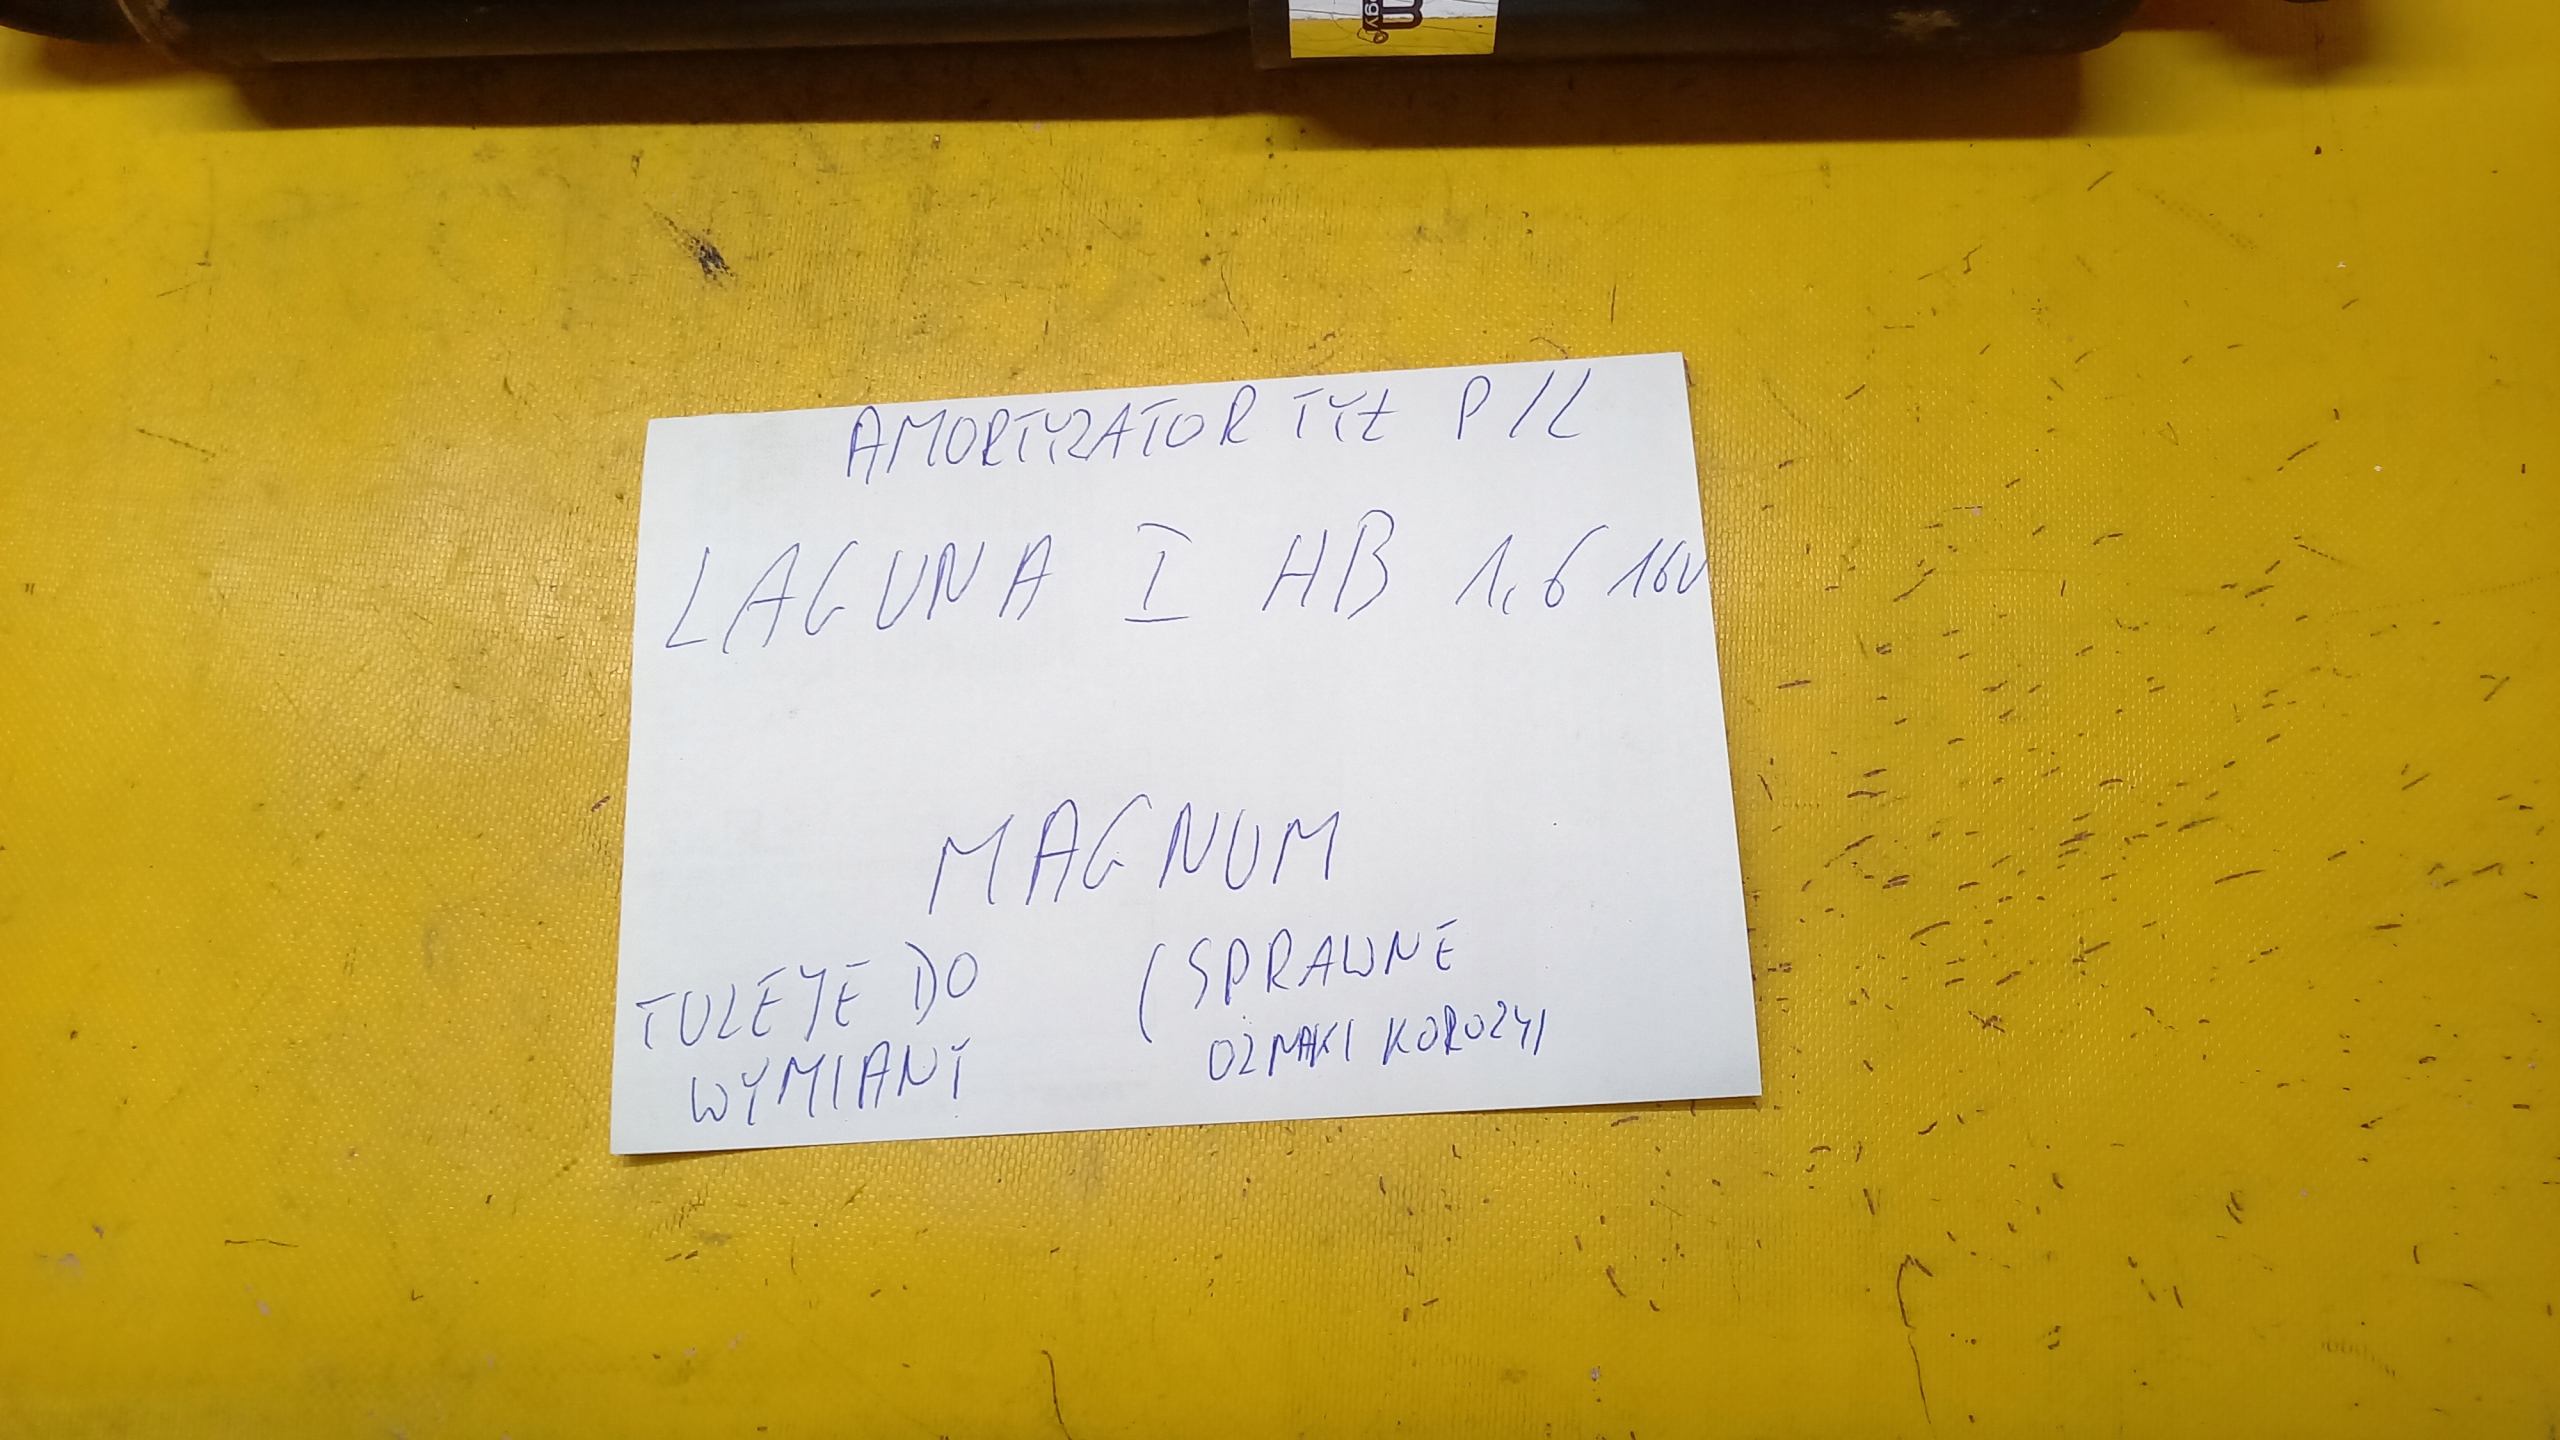 m
gy
AMORTYZATOR TYŁ P/L
LAGUNA I HB 1,6 16V
MAGNUM
TULEJE DO (SPRAWNE
WYMIANY OZNAKI KOROZYI